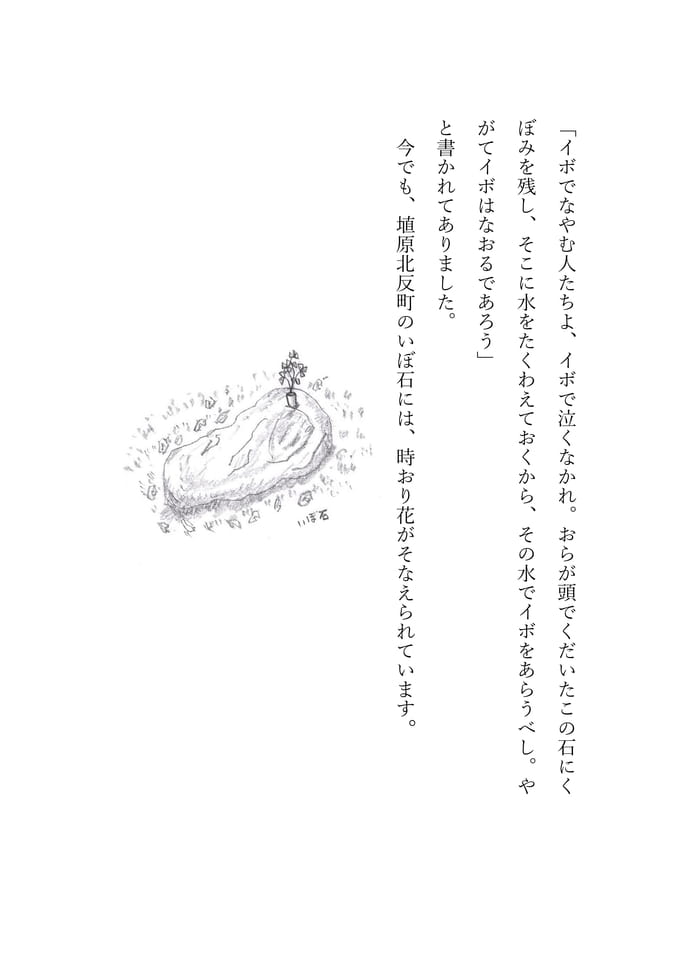 「イボでなやむ人たちよ、イボで泣くなかれ。おらが頭でくだいたこの石にく
ぼみを残し、そこに水をたくわえておくから、その水でイボをあらうべし。や
がてイボはなおるであろう」
と書かれてありました。
今でも、埴原北反町のいぼ石には、時おり花がそなえられています。
いぼ石